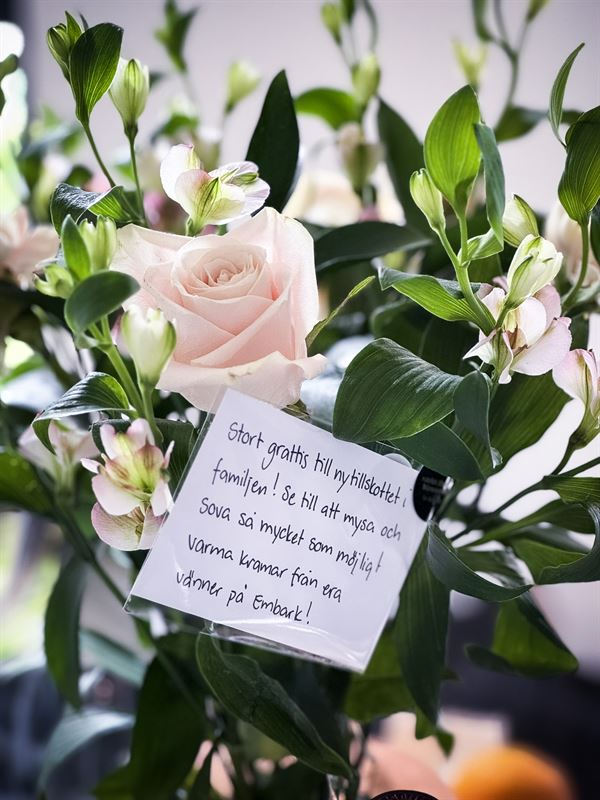 Stort grattis till nytillskottet i
familjen! Se till att mysa och
sova så mycket som möjligt
varma kramar från era
vänner på Embark!